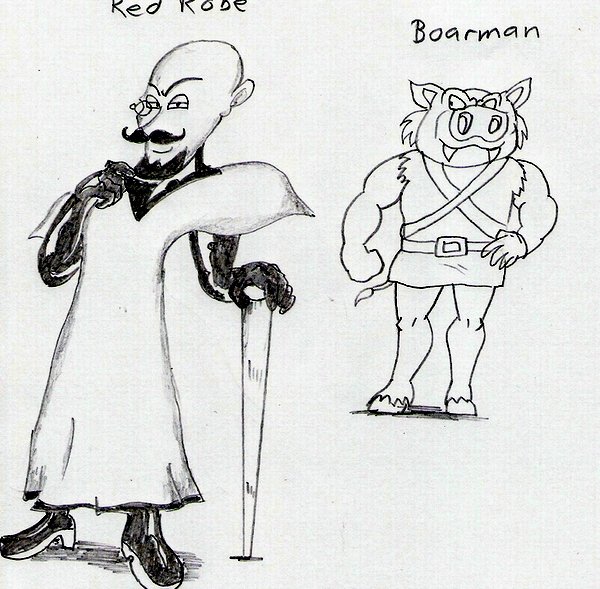 Red Robe
Boarman